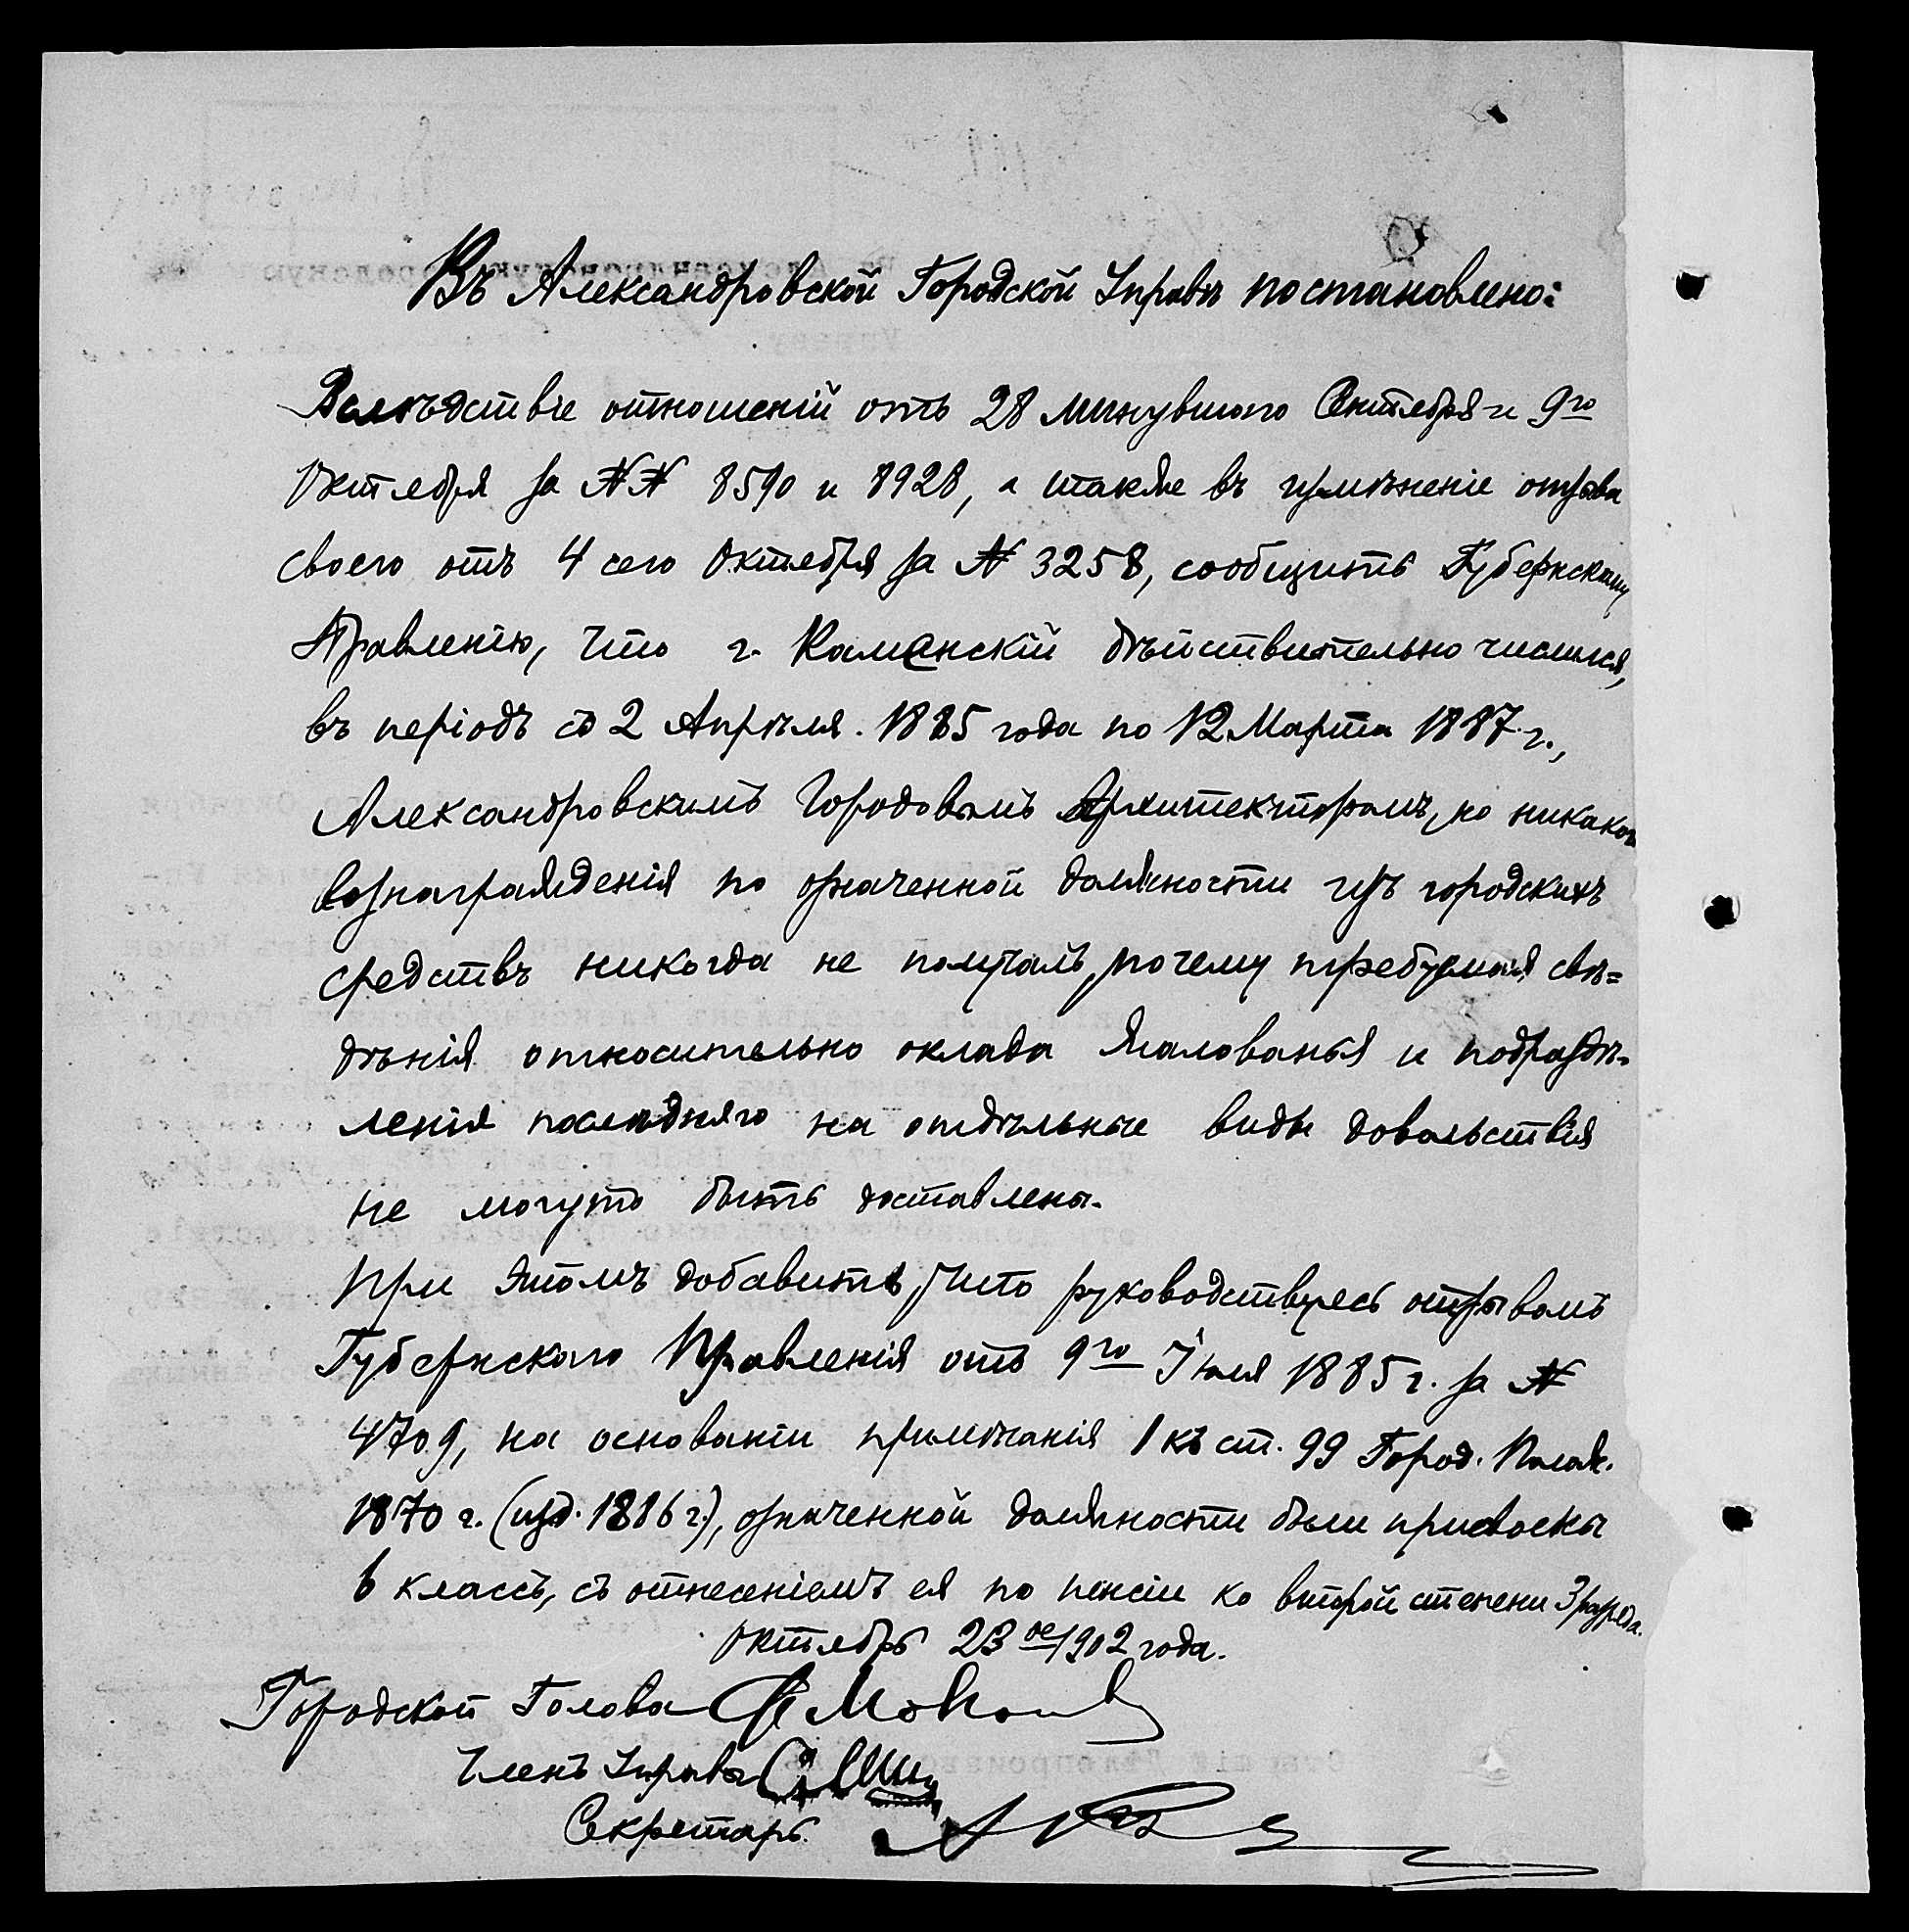 Въ Александровской Городской Управѣ постановлено:
Вслѣдствіе отношеній отъ 28 минувшаго Сентября и 9го
Октября за №№ 8590 и 8928, а также въ измѣненіе отзыва
своего отъ 4 сего Октября за № 3258, сообщить Губернскому
Правленію, что г. Каменскій дѣйствительно числился,
въ періодъ съ 2 Апрѣля 1885 года по 12 Марта 1887 г.,
Александровскимъ Городовымъ Архитекторомъ, но никакого
вознагражденія по означенной должности изъ городскихъ
средствъ никогда не получалъ, почему требуемыя свѣ=
дѣнія относительно оклада жалованья и подраздѣ-
ленія послѣдняго на отдѣльные виды довольствія
не могутъ быть доставлены.
При этомъ добавить, что руководствуясь отзывомъ
Губернскаго Правленія отъ 9го Іюля 1885 г. за №
4709, на основаніи примѣчанія 1 къ ст. 99 Город. Полож.
1870 г. (изд. 1886 г.), означенной должности были присвоены
6 классъ, съ отнесеніемъ ея по пенсіи ко второй степени 3 разряда.
Октября 23 ое 1902 года.
Городской Голова
Членъ Управы
Секретарь